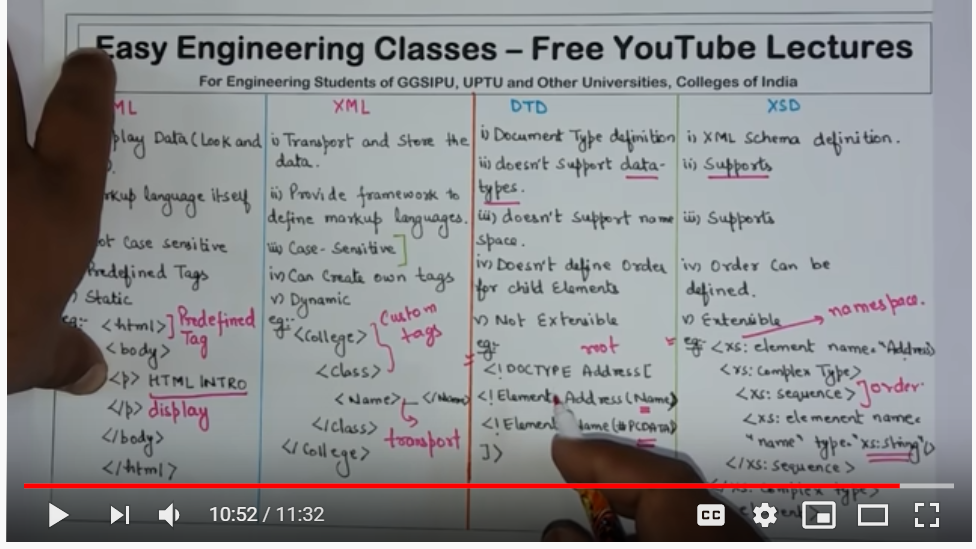 Easy Engineering Classes – Free YouTube Lectures
For Engineering Students of GGSIPU, UPTU and Other Universities, Colleges of India
ML
play Data (Look and
rkup language itself
ot Case sensitive
Predefined Tags
) Static
eg:-
<html>
Predefined
Tag
<body>
<p> HTML INTRO
</p> display
</body>
</html>
XML
i) Transport and Store the
data.
ii) Provide framework to
define markup languages.
iii) Case-Sensitive
iv) Can Create own tags
v) Dynamic
eg:-
<College>
Custom
tags
<Class>
<Name> </Name>
</Class>
transport
</College>
DTD
i) Document Type definition
ii) doesn't support data-
types.
iii) doesn't support name
space.
iv) Doesn't define Order
for child Elements
v) Not Extensible
eg:-
root
<! DOCTYPE Address[
<! Element Address (Name)
<! Element Name (#PCDATA)
]>
XSD
i) XML Schema definition.
ii) Supports
iii) Supports
iv) Order Can be
defined.
v) Extensible
namespace.
eg:- <xs: element name="Address>
<xs: Complex Type>
<xs: sequence>
order
<xs: elemenent name=
"name" type="xs:string"/>
</xs: sequence>
</xs: complex type>
10:52 / 11:32
CC